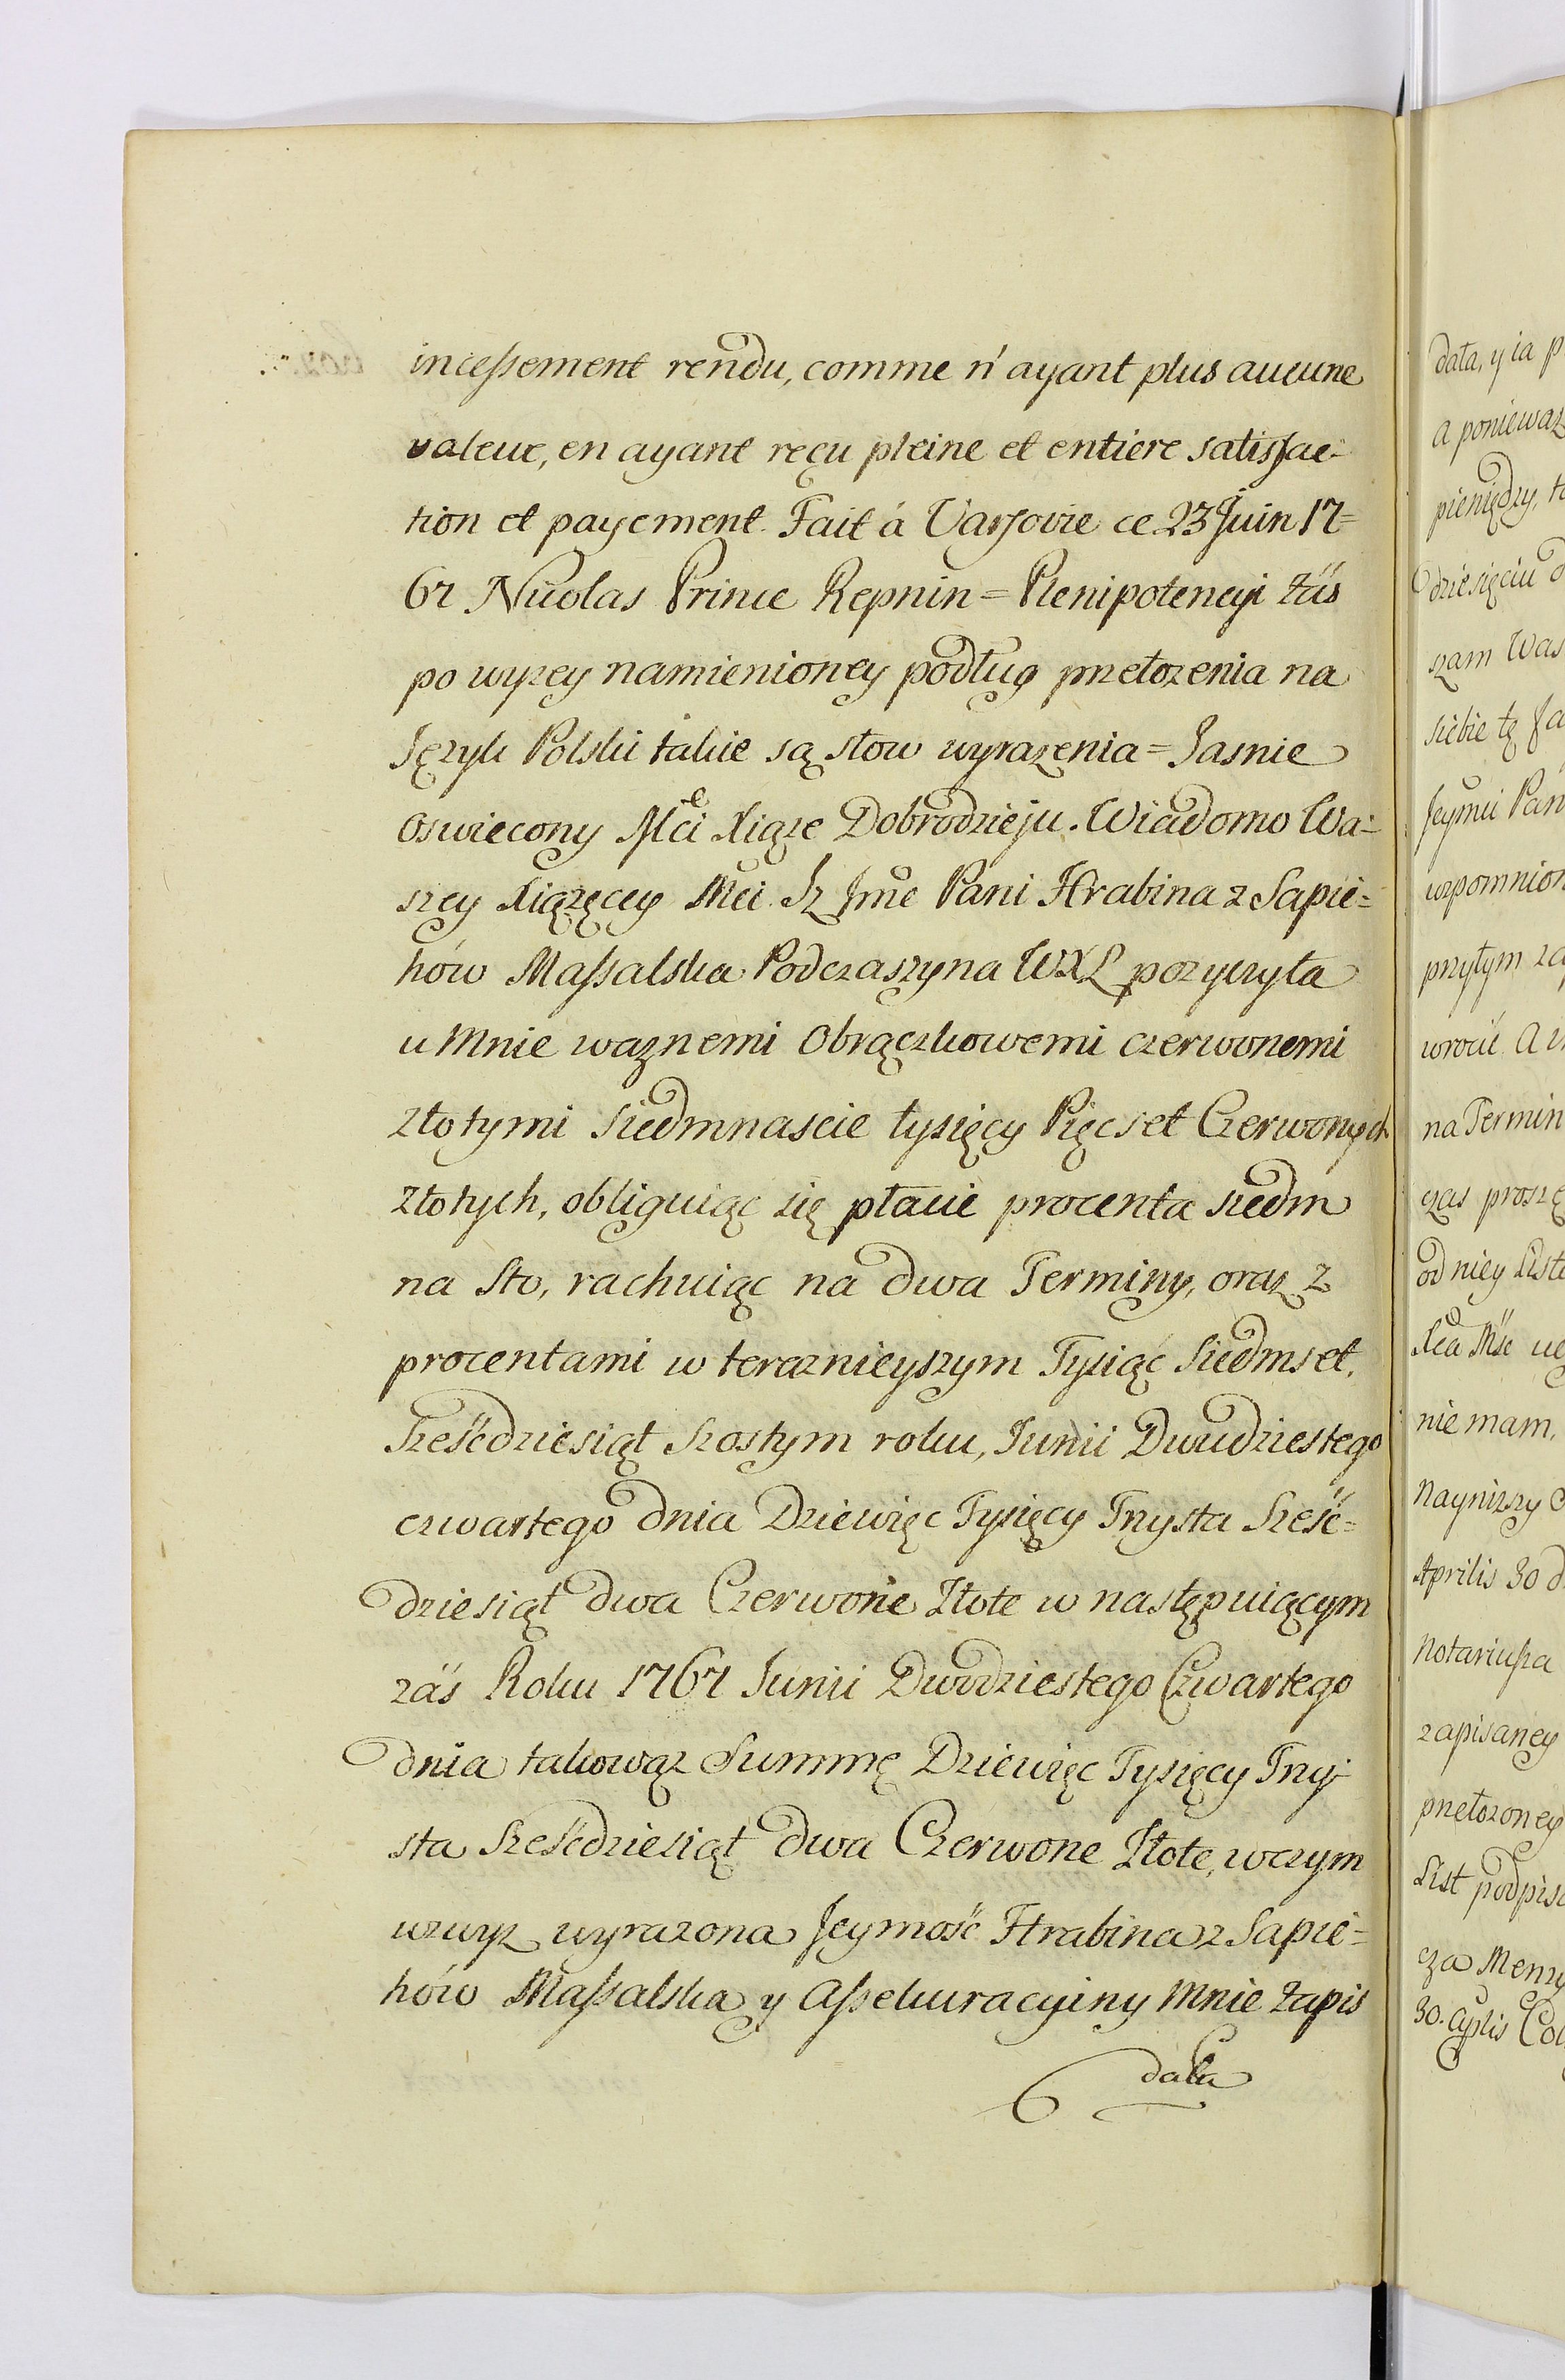 incessement rendu, comme n'ayant plus aucune
valeur, en ayant reçu pleine et entiere satisfac-
tion et payement. Fait á Varsovie ce 23 Juin 17=
67 Nicolas Prince Repnin = Plenipotencyi zaś
po wyzey namienioney podług przełozenia na
Język Polski takie są słow wyrazenia = Jasnie
Oswiecony Mci Xiąze Dobrodzieju. Wiadomo Wa=
szey Xiązęcey Mci. Iz Jme Pani Hrabina z Sapie=
hów Massalska Podczaszyna WXL pozyczyła
u Mnie waznemi Obrączkowemi czerwonemi
złotymi siedmnascie tysięcy Pięcset Czerwonych
złotych, obliguiąc się płacic procenta siedm
na Sto, rachuiąc na dwa Terminy, oraz z
procentami w teraznieyszym Tysiąc Siedmset.
Sześćdziesiąt Szostym roku, Junii Dwudziestego
czwartego dnia Dziewięc Tysięcy Trzysta Sześć=
dziesiąt dwa Czerwone Złote w następuiącym
zaś Roku 1767 Junii Dwódziestego Czwartego
dnia takowąz Summę Dziewięc Tysięcy Trzy-
sta Sześćdziesiąt dwa Czerwone Złote, w czym
wzwyz wyrazona Jeymość Hrabina z Sapie=
hów Massalska y Assekuracyiny Mnie Zapis
dała
data, y ia p
a poniewaz
pieniędzy, t
dziesięciu d
szam Was
siebie tę
Jeymci Pan
wzpomnion
przytym za
wrocić A
na Termin
czas proszę
od niey List
Xca Mśc
nie mam,
Naynizszy
Aprilis 30 d
Notariusza
zapisaney
przełozoney
List podpis
cza Menzy
30. Aprlis Col